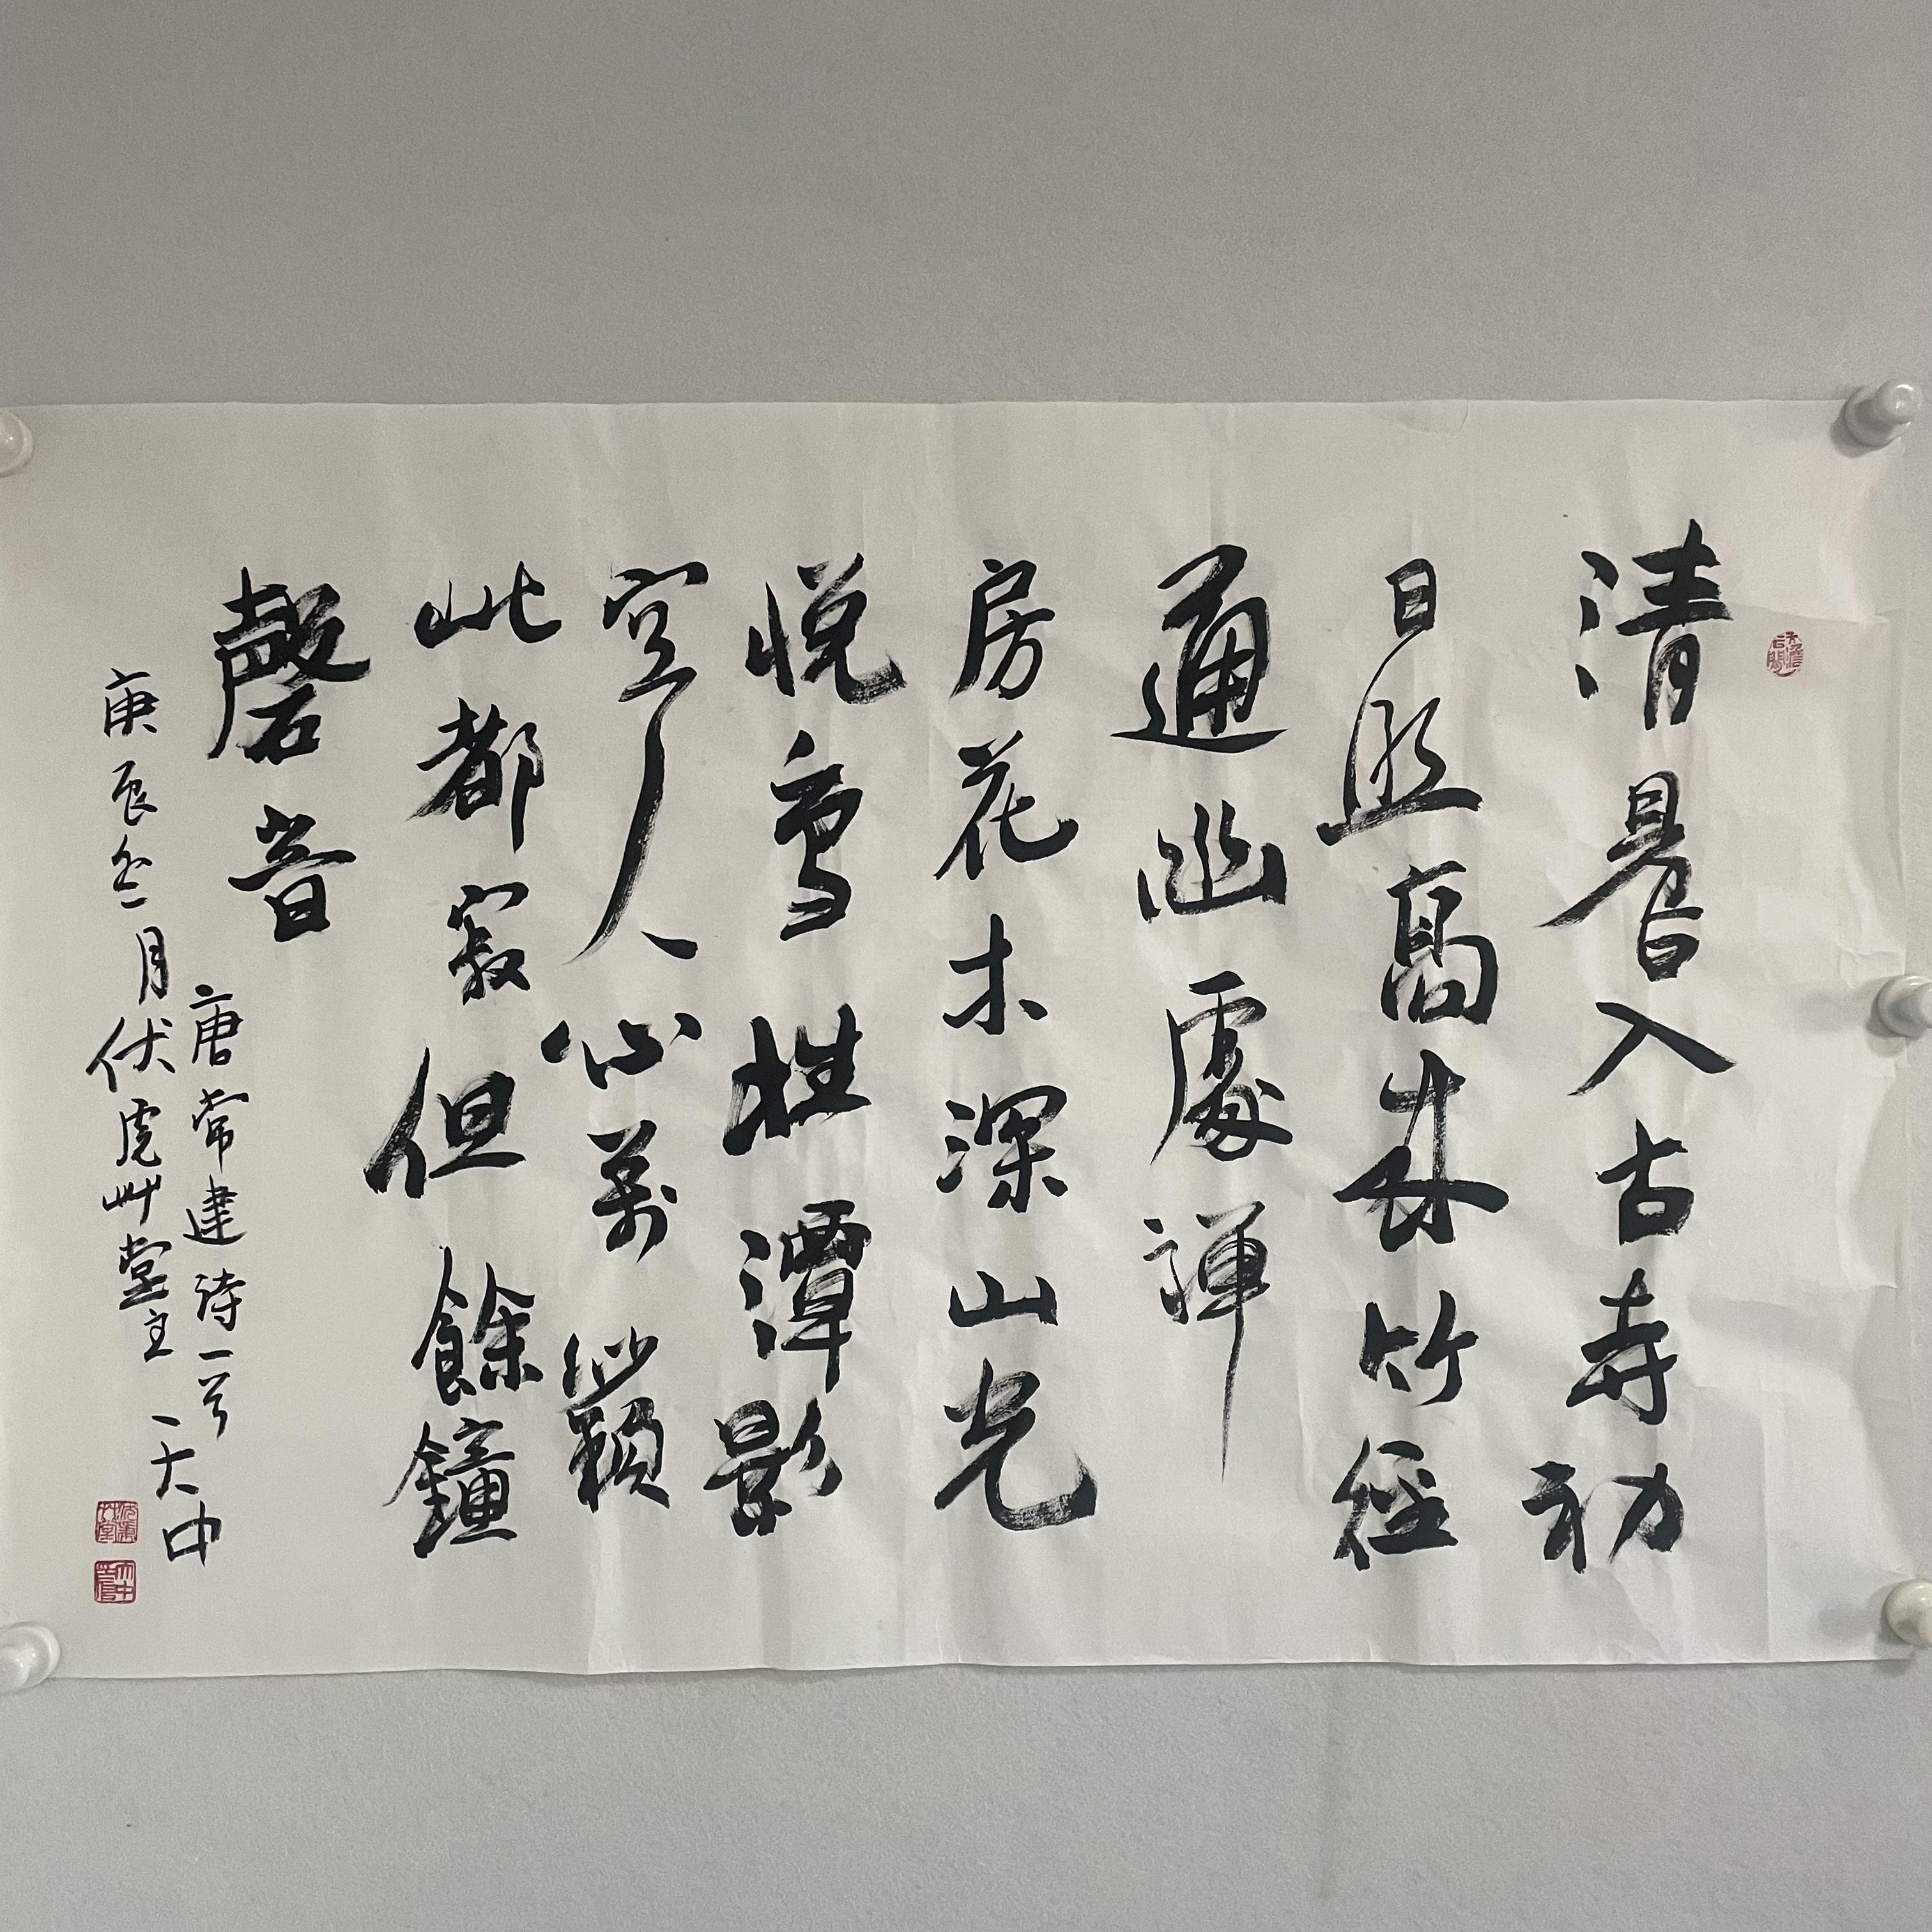 清晨入古寺初
日照高林竹徑
通幽處禪
房花木深山光
悅鳥性潭影
空人心萬籟
此都寂但餘鐘
磬音
唐常建詩一首
庚辰冬月伏虎艸堂主天中